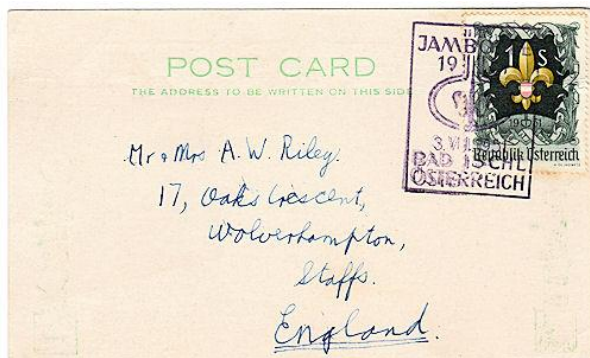 POST CARD
THE ADDRESS TO BE WRITTEN ON THIS SIDE
JAMBO
19
BAD ISCHL
ÖSTERREICH
1 S
Republik Österreich
Mr & Mrs A. W. Riley.
17, Oaks Crescent,
Wolverhampton,
Staffs.
England.